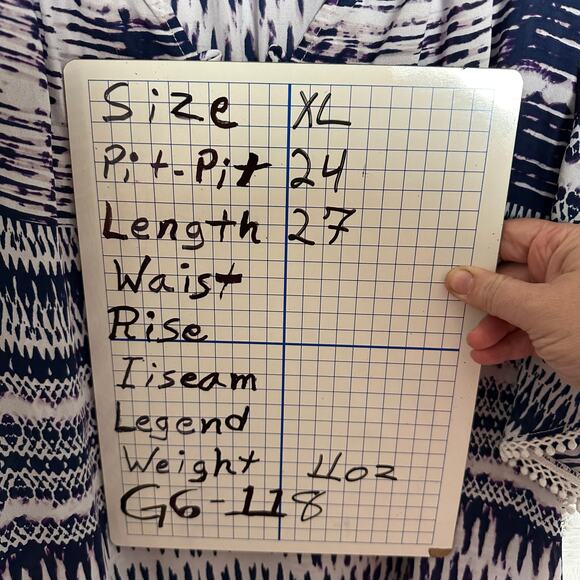 Size XL
Pit-Pit 24
Length 27
Waist
Rise
Iiseam
Legend
Weight 11oz
G6-118